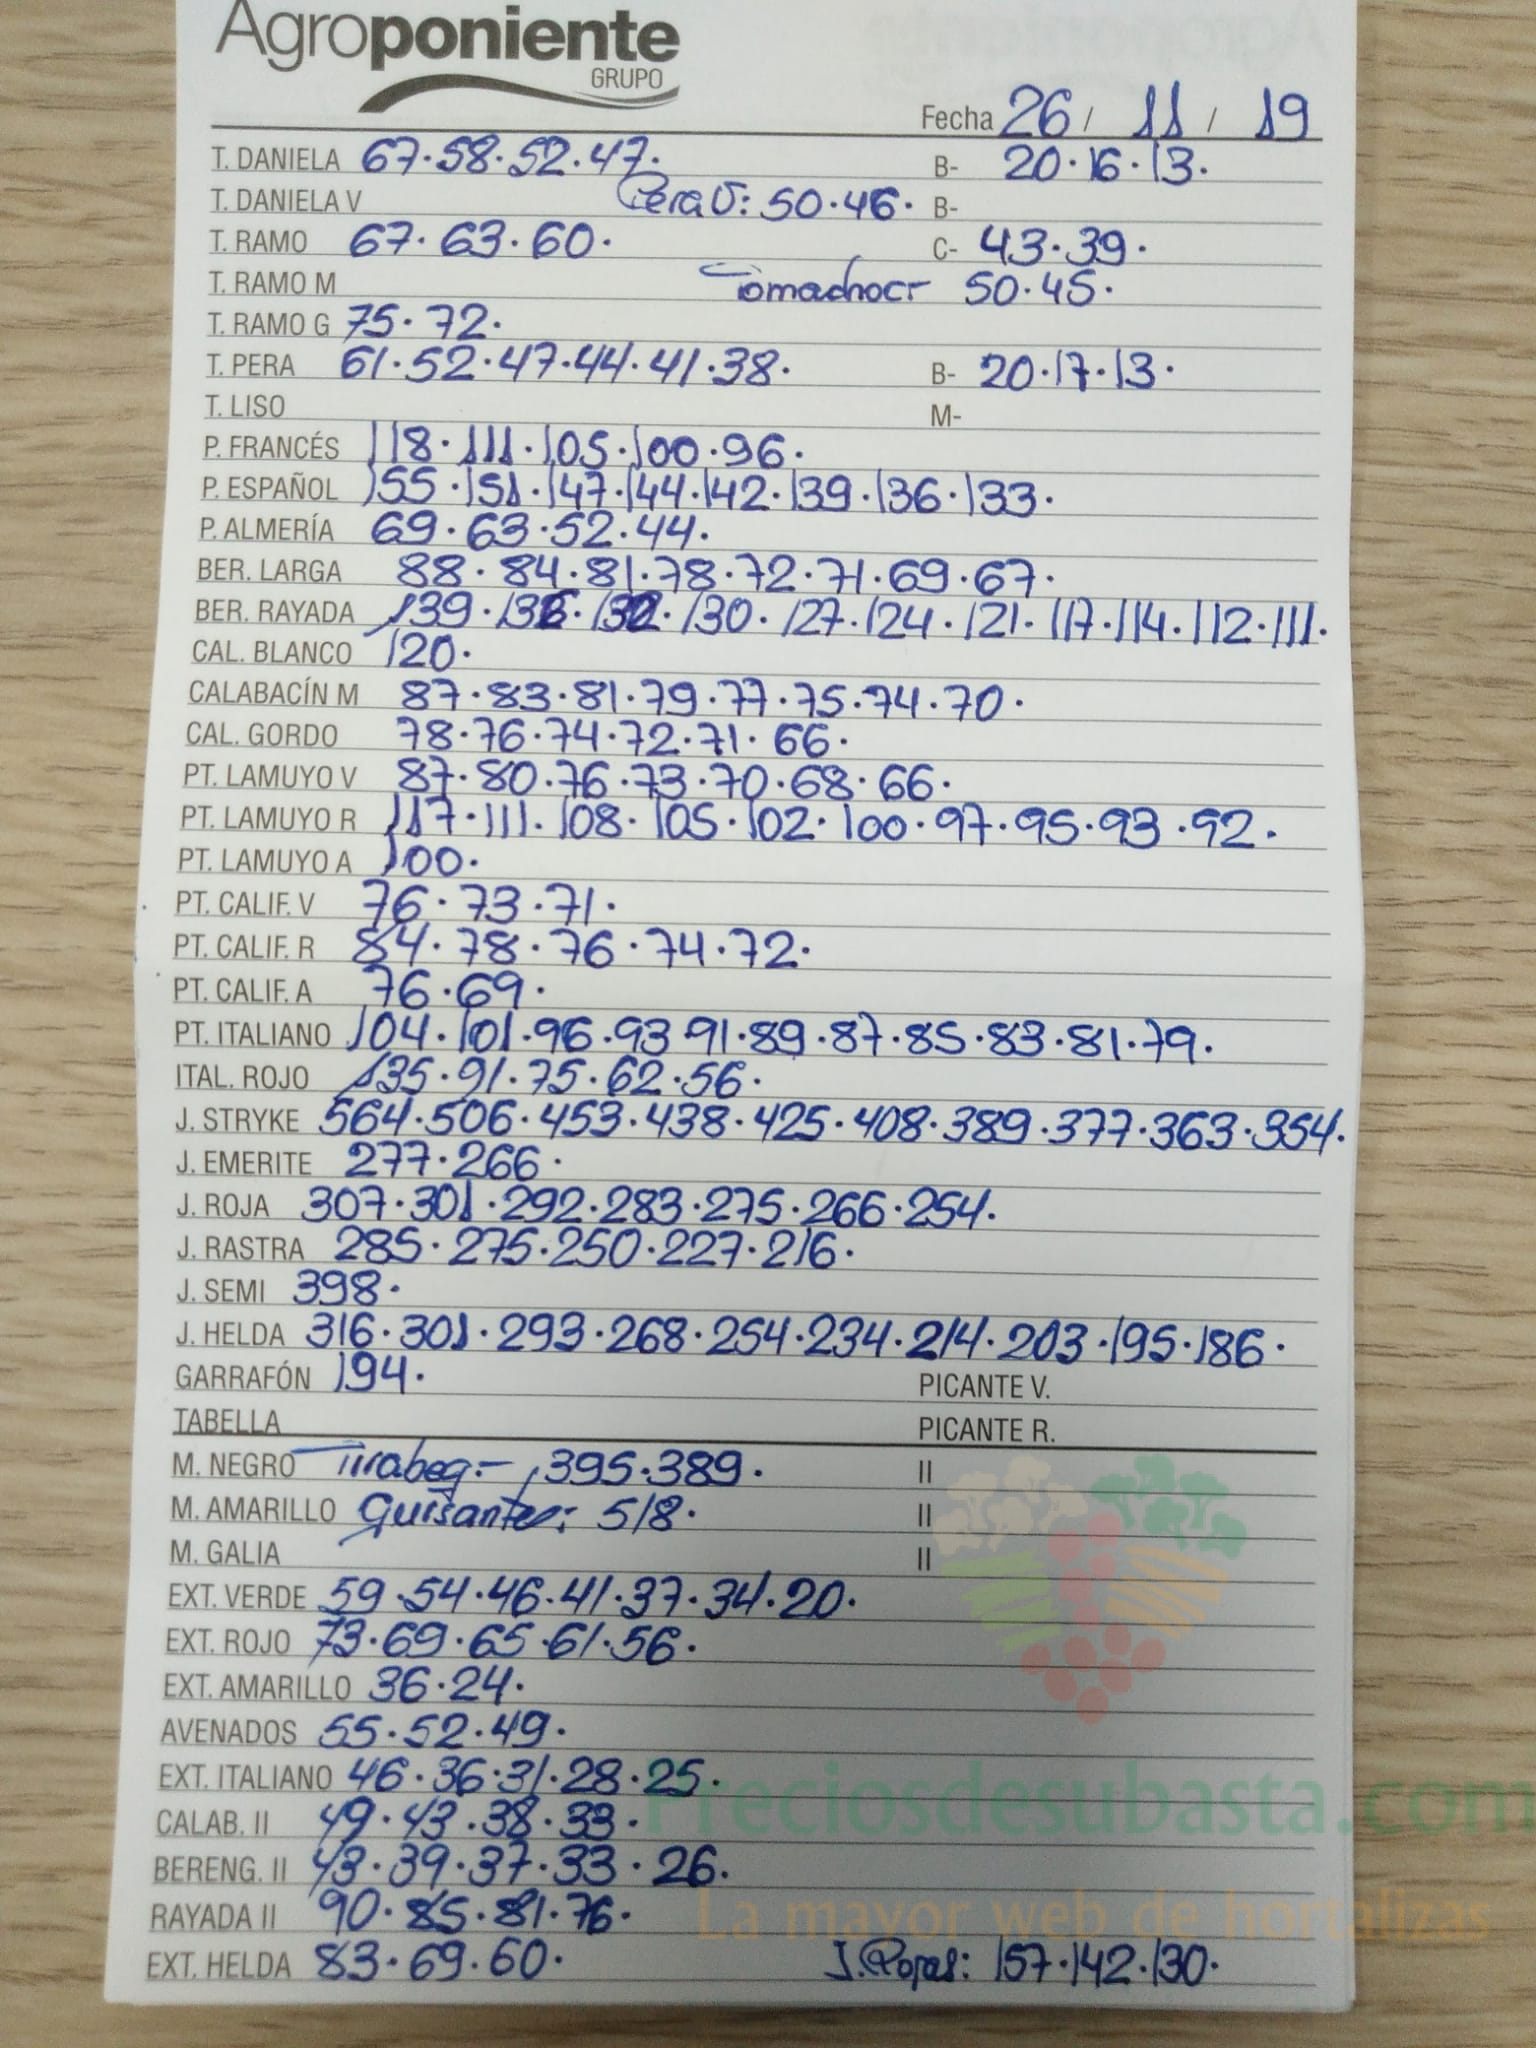 Agroponiente
GRUPO
Fecha 26 / 11 / 19
T. DANIELA 67·58·52·47· B- 20·16·13·
T. DANIELA V Pera V: 50·46· B-
T. RAMO 67·63·60· C- 43·39·
T. RAMO M 50·45·
T. RAMO G 75·72·
T. PERA 61·52·47·44·41·38· B- 20·17·13·
T. LISO M-
P. FRANCÉS 118·111·105·100·96·
P. ESPAÑOL 155·151·147·144·142·139·136·133·
P. ALMERÍA 69·63·52·44·
BER. LARGA 88·84·81·78·72·71·69·67·
BER. RAYADA 139·136·132·130·127·124·121·117·114·112·111·
CAL. BLANCO 120·
CALABACÍN M 87·83·81·79·77·75·74·70·
CAL. GORDO 78·76·74·72·71·66·
PT. LAMUYO V 87·80·76·73·70·68·66·
PT. LAMUYO R 117·111·108·105·102·100·97·95·93·92·
PT. LAMUYO A 100·
PT. CALIF. V 76·73·71·
PT. CALIF. R 84·78·76·74·72·
PT. CALIF. A 76·69·
PT. ITALIANO 104·101·96·93·91·89·87·85·83·81·79·
ITAL. ROJO 135·91·75·62·56·
J. STRYKE 564·506·453·438·425·408·389·377·363·354·
J. EMERITE 277·266·
J. ROJA 307·301·292·283·275·266·254·
J. RASTRA 285·275·250·227·216·
J. SEMI 398·
J. HELDA 316·301·293·268·254·234·214·203·195·186·
GARRAFÓN 194· PICANTE V.
TABELLA PICANTE R.
M. NEGRO Tirabeq- 395·389· II
M. AMARILLO Guisantes: 518· II
M. GALIA II
EXT. VERDE 59·54·46·41·37·34·20·
EXT. ROJO 73·69·65·61·56·
EXT. AMARILLO 36·24·
AVENADOS 55·52·49·
EXT. ITALIANO 46·36·31·28·25·
Preciosdesubasta.com
CALAB. II 49·43·38·33·
BERENG. II 43·39·37·33·26·
RAYADA II 90·85·81·76·
La mayor web de hortalizas
EXT. HELDA 83·69·60· J. Rojas: 157·142·130·